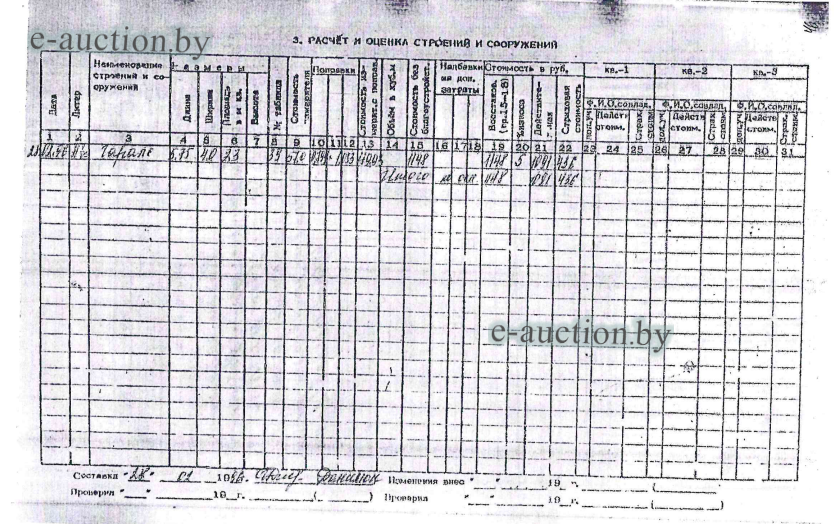 e-auction.by
3. РАСЧЁТ И ОЦЕНКА СТРОЕНИЙ И СООРУЖЕНИЙ
Дата Литер Наименование строений и сооружений Размеры № таблиц Стоимость измерителя Поправки Объём в куб.м Стоимость без благоустройст. Надбавки на доп. затраты Стоимость в руб. кв.-1 кв.-2 кв.-3
Длина Ширина Площадь в м кв. Высота Восстанов. (гр.15-18) % износа Действительная Страховая стоимость Ф.И.О.совлад. Ф.И.О.совлад. Ф.И.О.совлад.
Действ стоим. Страх. стоим. Действ стоим. Страх. стоим. Действ стоим. Страх. стоим.
1 2 3 4 5 6 7 8 9 10 11 12 13 14 15 16 17 18 19 20 21 22 23 24 25 26 27 28 29 30 31
Гараж 5,75 4,0 23 1148 1148 5 1091 436
Итого 1148 1091 436
e-auction.by
Составил "28" 02 19 г. Данилюк Изменения внес " " 19 г. ( )
Проверил " " 19 г. ( ) Проверил " " 19 г. ( )